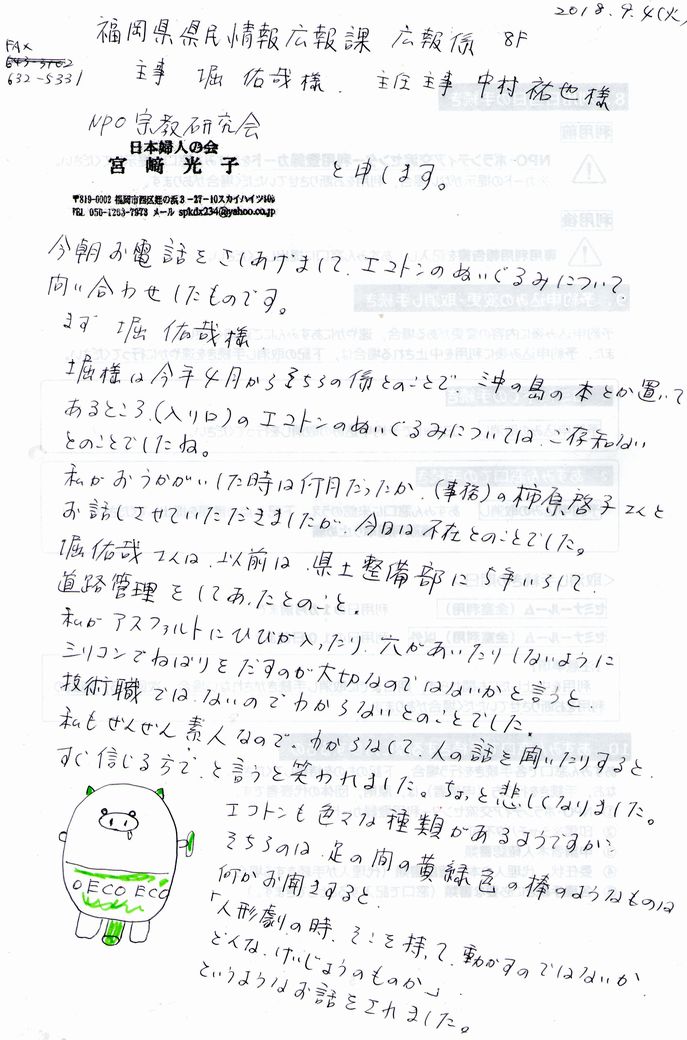 2018.9.4(火)
福岡県県民情報広報課 広報係 8F
FAX
643-3102
632-5331
主事 堀 佑哉様. 主任主事 中村祐也様
NPO宗教研究会
日本婦人の会
宮 﨑 光 子
と申します。
〒819-0002 福岡市西区姪の浜3-27-10スカイハイツ106
TEL 050-1263-7978 メール spkdx234@yahoo.co.jp
今朝お電話をさしあげまして、エコトンのぬいぐるみについて
問い合わせしたものです。
まず 堀 佑哉様
堀様は今年4月からそちらの係とのことで、沖の島の本とか置いて
あるところ、(入り口)のエコトンのぬいぐるみについては、ご存知ない
とのことでしたね。
私がおうかがいした時は何月だったか、(事務)の柿原啓子さんと
お話しさせていただきましたが、今日は不在とのことでした。
堀佑哉さんは、以前は、県土整備部に5年いらして、
道路管理をしてあったとのこと、
私がアスファルトにひびが入ったり、穴があいたりしないように
シリコンでねばりをだすのが大切なのではないかと言うと、
技術職ではないのでわからないとのことでした。
私もぜんぜん素人なので、わからなくて、人の話を聞いたりすると、
すぐ信じる方で、と言うと笑われました。ちょっと悲しくなりました。
エコトンも色々な種類があるようですが、
そちらのは、足の間の黄緑色の棒のようなものは
何かお聞きすると、
「人形劇の時、そこを持って、動かすのではないか、
どんな、けいじょうのものか」、
というようなお話をされました。
O ECO ECO